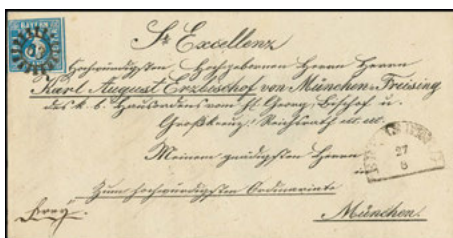 BAYERN
Sr Excellenz
Hochwürdigsten Hochgebornen Herrn Herrn
Karl August Erzbischof von München-Freising
des k. b. Hausordens vom hl. Georg, Bischof u.
Großkreuz, Reichsrath etc. etc.
Meinem gnädigsten Herrn
in
27
8
Zum hochwürdigsten Ordinariate
frey.
München.